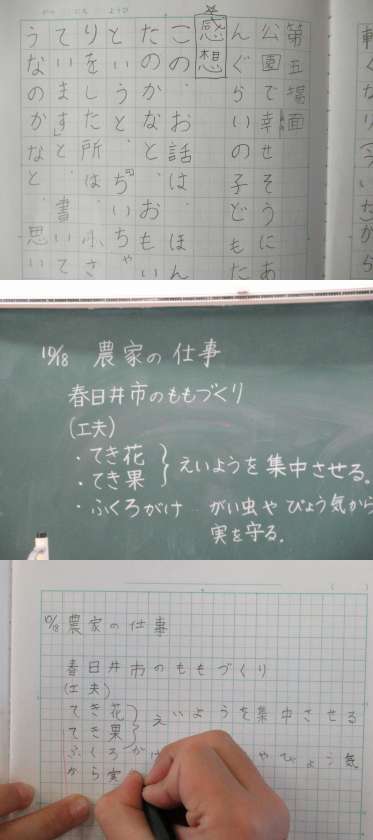 第五場面
公園で幸せそうにあ
んぐらいの子どもた
感想
この、お話は、ほん
たのかなと、おもい
というと、「ちいちゃ
りをした所は、小さ
ています」と、書いて
うなのかなと、思い
10/18 農家の仕事
春日井市のももづくり
(工夫)
・てき花
・てき果 } えいようを集中させる。
・ふくろがけ がい虫やびょう気から
実を守る。
10/18 農家の仕事
春日井市のももづくり
(工夫)
てき花
てき果 } えいようを集中させる
ふくろが やびょう気
から実